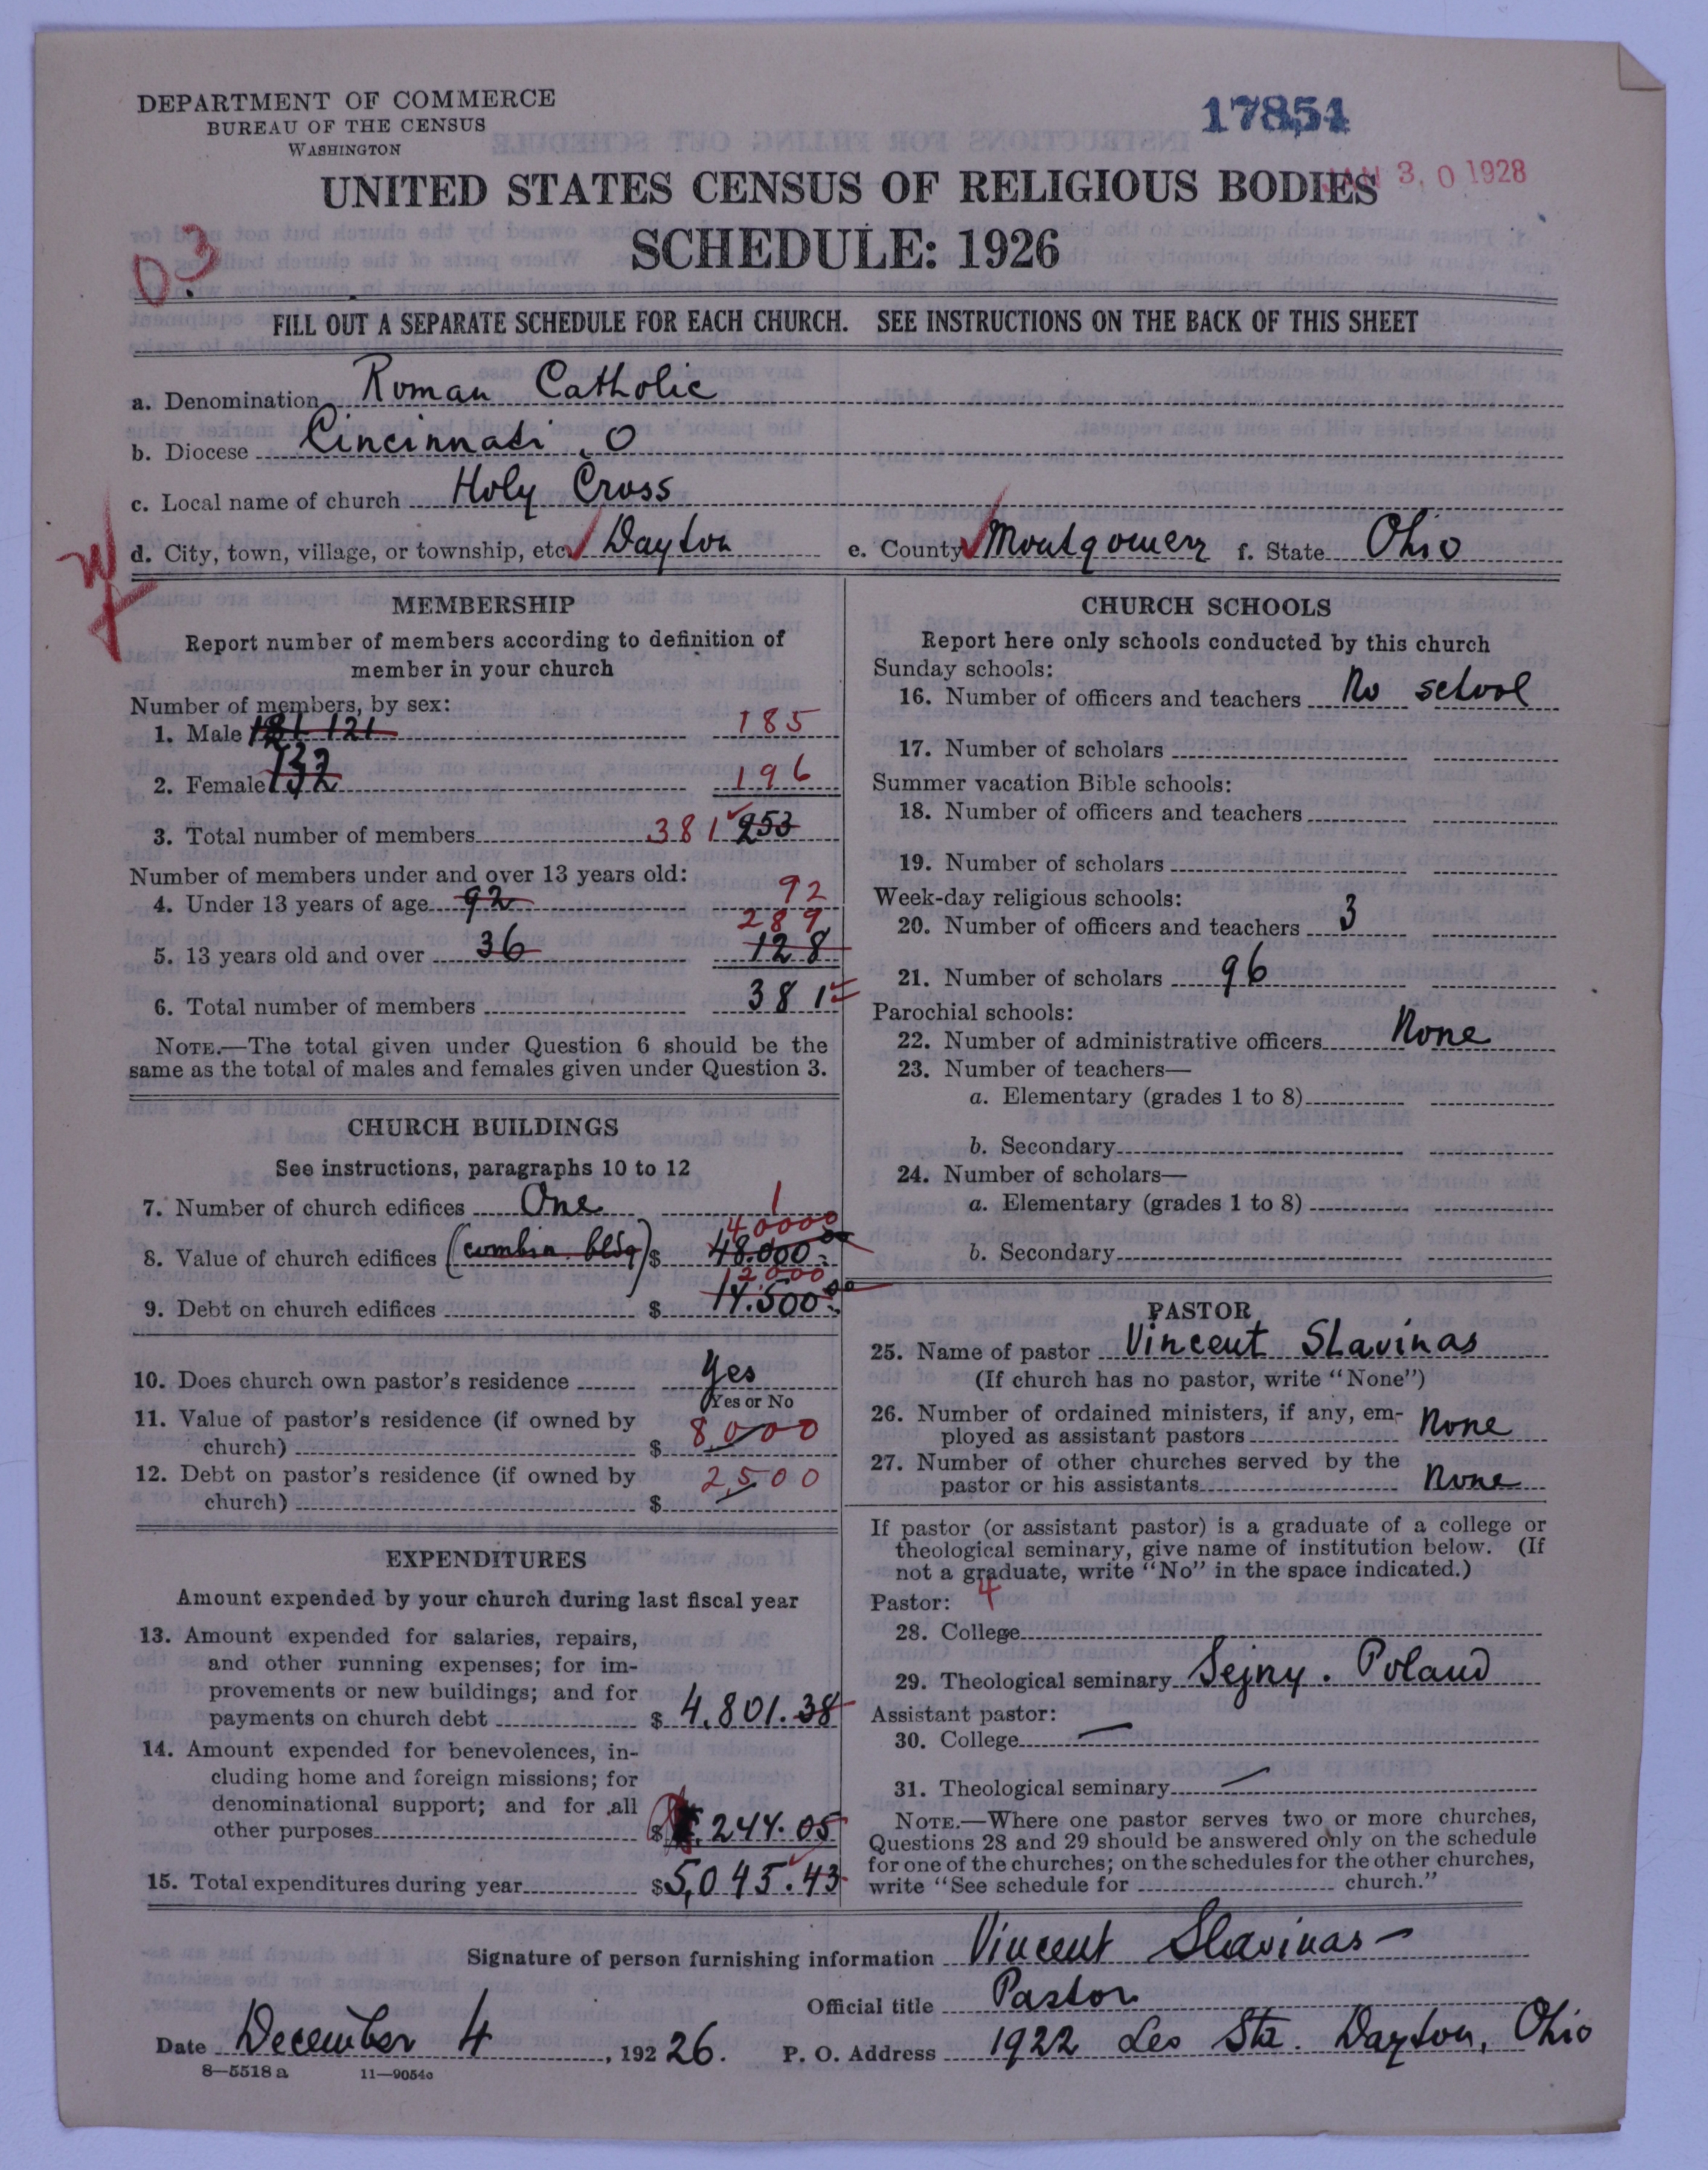 DEPARTMENT OF COMMERCE
BUREAU OF THE CENSUS
WASHINGTON
17854
JAN 3 0 1928
UNITED STATES CENSUS OF RELIGIOUS BODIES
SCHEDULE: 1926
03
FILL OUT A SEPARATE SCHEDULE FOR EACH CHURCH. SEE INSTRUCTIONS ON THE BACK OF THIS SHEET
a. Denomination Roman Catholic
b. Diocese Cincinnati, O
c. Local name of church Holy Cross
d. City, town, village, or township, etc. Dayton e. County Montgomery f. State Ohio
MEMBERSHIP
Report number of members according to definition of
member in your church
Number of members, by sex:
1. Male 121 185
2. Female 132 196
3. Total number of members 381 253
Number of members under and over 13 years old:
4. Under 13 years of age 92 92
289
5. 13 years old and over 36 128
6. Total number of members 381
NOTE.—The total given under Question 6 should be the
same as the total of males and females given under Question 3.
CHURCH BUILDINGS
See instructions, paragraphs 10 to 12
7. Number of church edifices One 1
40000
8. Value of church edifices (combin. bldg) $ 48.000.00
12000
9. Debt on church edifices $ 14.500.00
10. Does church own pastor's residence Yes
Yes or No
11. Value of pastor's residence (if owned by
church) $ 8000
12. Debt on pastor's residence (if owned by
church) $ 2500
EXPENDITURES
Amount expended by your church during last fiscal year
13. Amount expended for salaries, repairs,
and other running expenses; for im-
provements or new buildings; and for
payments on church debt $ 4,801.38
14. Amount expended for benevolences, in-
cluding home and foreign missions; for
denominational support; and for all
other purposes $ 244.05
15. Total expenditures during year $5,045.43
CHURCH SCHOOLS
Report here only schools conducted by this church
Sunday schools:
16. Number of officers and teachers No school
17. Number of scholars
Summer vacation Bible schools:
18. Number of officers and teachers
19. Number of scholars
Week-day religious schools:
20. Number of officers and teachers 3
21. Number of scholars 96
Parochial schools:
22. Number of administrative officers None
23. Number of teachers—
a. Elementary (grades 1 to 8)
b. Secondary
24. Number of scholars—
a. Elementary (grades 1 to 8)
b. Secondary
PASTOR
25. Name of pastor Vincent Slavinas
(If church has no pastor, write "None")
26. Number of ordained ministers, if any, em-
ployed as assistant pastors None
27. Number of other churches served by the
pastor or his assistants None
If pastor (or assistant pastor) is a graduate of a college or
theological seminary, give name of institution below. (If
not a graduate, write "No" in the space indicated.)
Pastor: 4
28. College
29. Theological seminary Sejny. Poland
Assistant pastor:
30. College —
31. Theological seminary —
NOTE.—Where one pastor serves two or more churches,
Questions 28 and 29 should be answered only on the schedule
for one of the churches; on the schedules for the other churches,
write "See schedule for church."
Signature of person furnishing information Vincent Slavinas
Official title Pastor
Date December 4, 1926. P. O. Address 1922 Leo Str. Dayton, Ohio
8—5518a 11—9054c